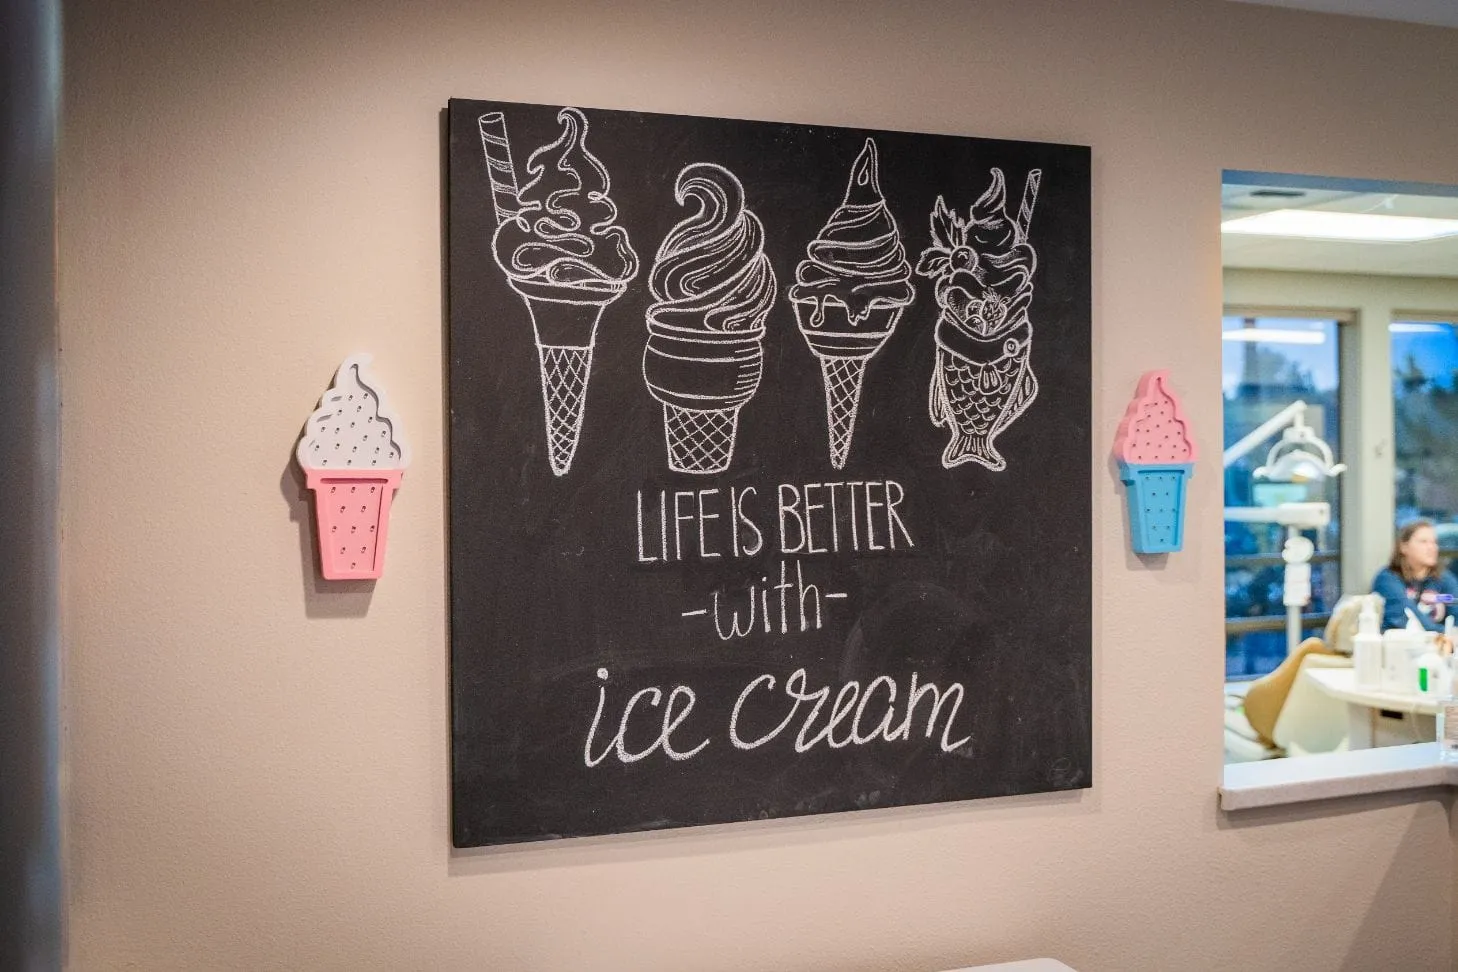 LIFE IS BETTER
-with-
ice cream